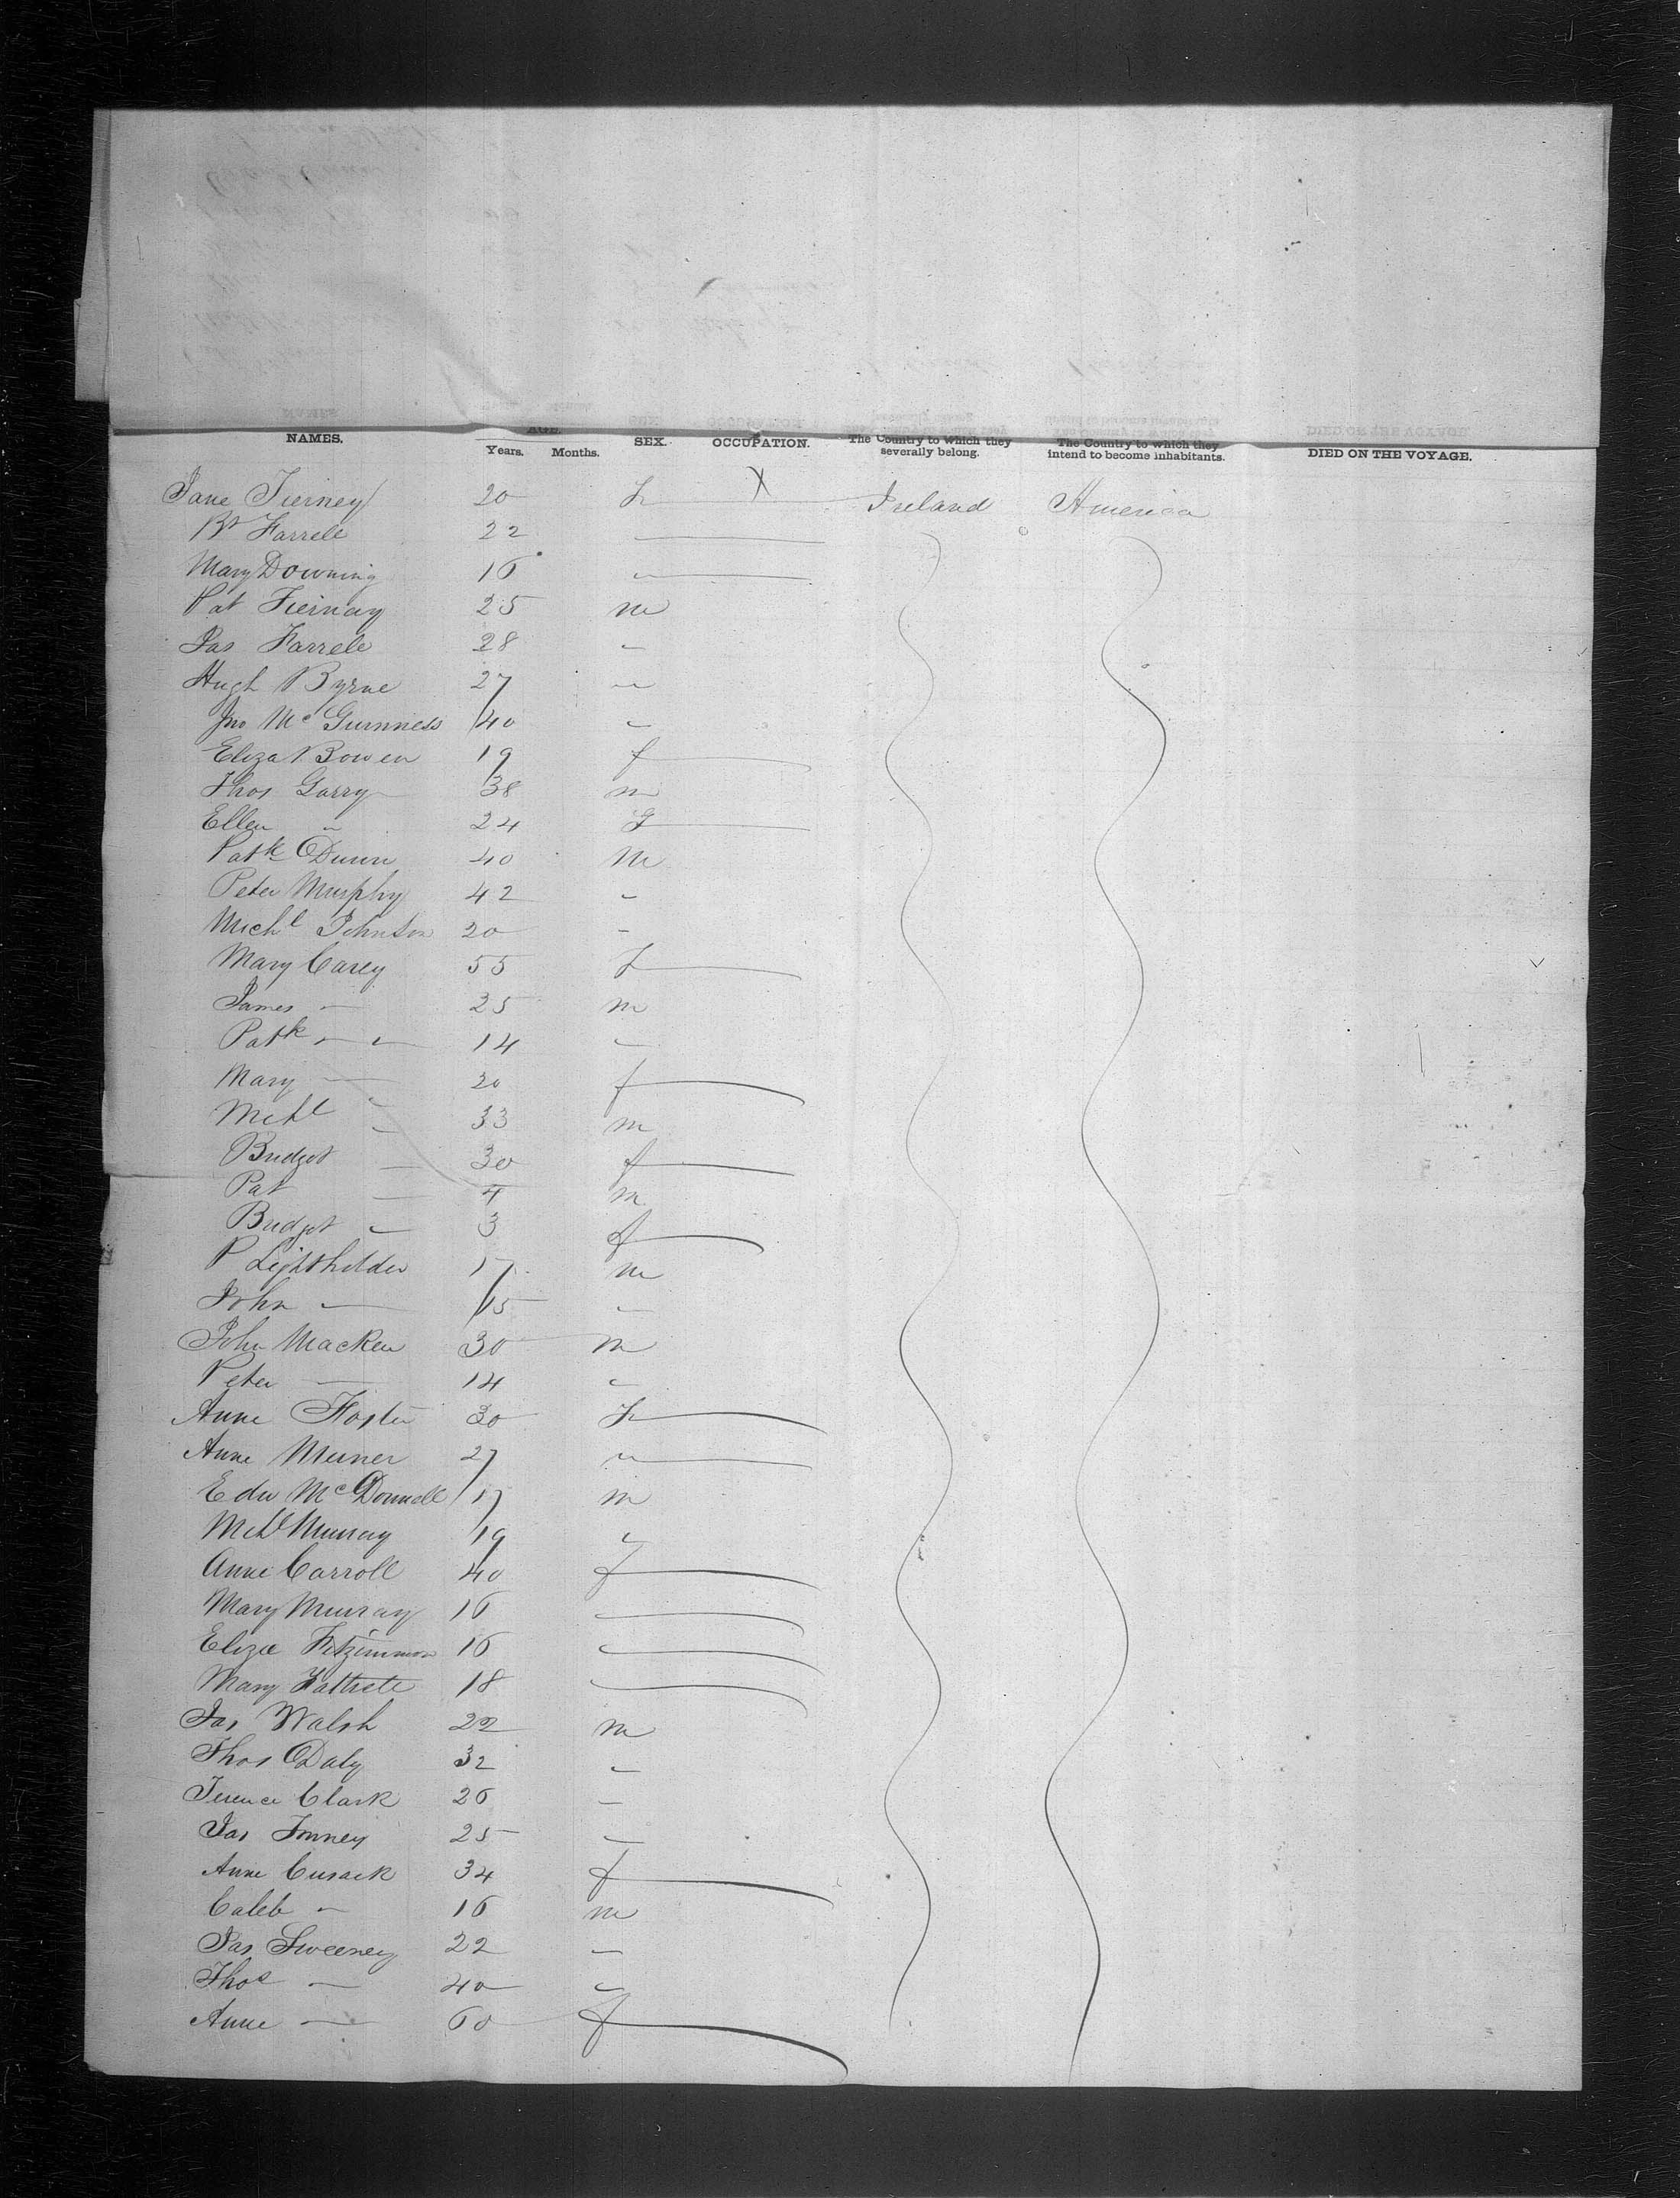 NAMES. AGE. Years. Months. SEX. OCCUPATION. The Country to which they severally belong. The Country to which they intend to become inhabitants. DIED ON THE VOYAGE.
Jane Tierney 20 f X Ireland America
Bt Farrell 22
Mary Downing 16 "
Pat Tiernay 25 m
Jas Farrell 28 "
Hugh Byrne 27 "
Jno Mc Guinness 40 "
Eliza Bowen 19 f
Thos Garry 38 m
Ellen " 24 f
Patk Dunn 40 m
Peter Murphy 42 "
Michl Johnson 20 "
Mary Carey 55 f
James — 25 m
Patk " " 14 "
Mary — 20 f
Mchl " 33 m
Bridget — 30 f
Pat — 4 m
Bridget — 3 f
P Lightholder 17 m
John — 15 "
John Macken 30 m
Peter — 14 "
Anne Foster 30 f
Anne 27 "
Edw McDonnell 17 m
Mchl Murray 19 "
Anne Carroll 40 f
Mary Murray 16
Eliza Fitzimmon 16
Mary 18
Jas Walsh 22 m
Thos Daly 32 "
Terence Clark 26 —
Jas 25 —
Anne Cusack 34 f
Caleb " 16 m
Jas Sweeney 22 —
Thos — 40 "
Anne — 60 f